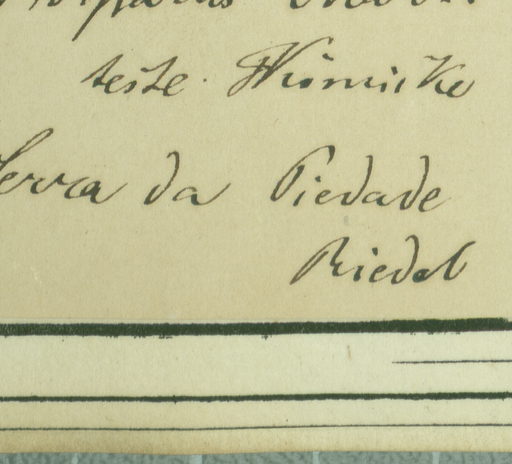 teste Körnicke
Serra da Piedade
Riedel